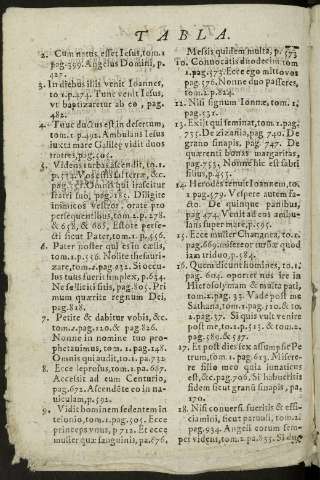 TABLA.
2. Cum natus esset Iesus, tom.1
pag.399. Angelus Domini, p.
427.
3. In diebus illis venit Ioannes,
to 1.p.274. Tunc venit Iesus,
vt baptizaretur ab eo, pag.
482.
4. ductus est in desertum,
tom.1 p.492. Ambulans Iesus
iuxta mare Galileę vidit duos
trotres, pag.505.
5. Videns turbas ascendit, to.1.
Vos estis sal terræ, &c.
pag. Omnis qui irascitur
fratri suo, pag. Diligite
inimicos vestros, orate pro
persequentibus, tom.2.p.278.
& 658, & 665, Estote perfe-
cti sicut Pater, tom.1.p.556.
6. Pater noster qui es in cælis,
tom.1.p.556. Nolite thesauri-
zare, tom.2.pag.932. Si ocu-
lus tuus fuerit simplex, p.634.
Ne solliciti sitis, pag.805. Pri-
mum quærite regnum Dei,
pag.818.
7. Petite & dabitur vobis, &c.
tom.2.pag.120. & pag 826.
Nonne in nomine tuo pro-
phetauimus, tom 1. pag.148.
Omnis qui audit, to.1.pa.732
8. Ecce leprosus, tom.1 pa.687.
Accessit ad eum Centurio,
pag.672. Ascendēte eo in na-
uiculam, p.592.
9. Vidit hominem sedentem in
telonio, tom.1.pag.505. Ecce
princeps vnus, p 712. Et ecce
mulier quæ sanguinis, pa.676.
Messis quidem multa, p. 573
10. Conuocatis duodecim tom
1.pag.573. Ecce ego mitto vos
pag 576. Nonne duo passeres,
tom.2.p.824.
12. Nisi signum Ionnæ, tom.1,
pag.431.
13. Exiit qui seminat, tom.1.pag
733. De zizania, pag 740. De
grano sinapis, pag. 747. De
quærenti bonas margaritas
pag.753. Nonne hic est fabri
filius, p.457.
14. Herodes tenuit Ioannem, to.
2 pag.579. Vespere autem fa-
cto. De quinque panibus,
pag 474. Venit ad eos ambu-
lans super mare, p.595.
15. Ecce mulier Chananea, to.2.
pag.669. misereor turbæ quod
iam triduo, p.584.
16. Quem dicunt homines, to.12
pag. 609. oportet nos ire in
Hierosolymam & multa pati,
tom.2.pag.33. Vade post me
Sathana, tom.1.pag.720, & to.
2.pag.37. Si quis vult venire
post me, to.1.p.513. & tom.2.
pag.580. & 587.
17. Et post dies sex assumpsit Pe
trum, tom 1. pag.613. Misere-
re filio meo quia lunaticus
est, &c. pag.706. Si habueritis
fidem sicut granū sinapis, pa.
170.
18. Nisi conuersi fueritis & effi-
ciamini, sicut paruuli, tom 2.
pag.934. Angeli eorum sem-
per vident, tom 2 pa.855. Si duo